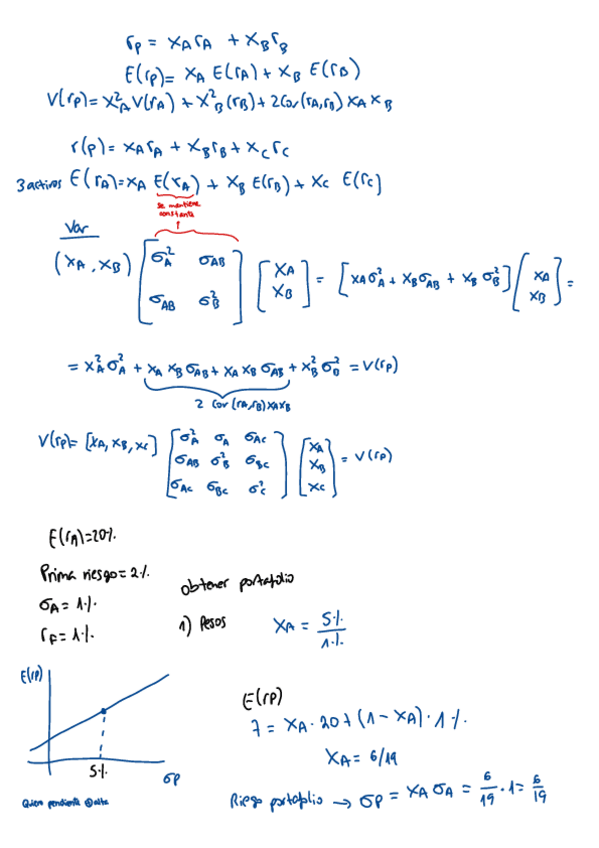 r_P = x_A r_A + x_B r_B
E(r_P) = x_A E(r_A) + x_B E(r_B)
V(r_P) = x²_A V(r_A) + x²_B (r_B) + 2 Cov(r_A, r_B) x_A x_B
r(p) = x_A r_A + x_B r_B + x_C r_C
3 activos E(r_A) = x_A E(r_A) + x_B E(r_B) + x_C E(r_C)
se mantiene
constante
Var
(x_A, x_B) [σ²_A σ_AB; σ_AB σ²_B] [x_A; x_B] = [x_A σ²_A + x_B σ_AB + x_B σ²_B] (x_A; x_B) =
= x²_A σ²_A + x_A x_B σ_AB + x_A x_B σ_AB + x²_B σ²_B = V(r_P)
2 Cov(r_A, r_B) x_A x_B
V(r_P) = [x_A, x_B, x_C] [σ²_A σ_A σ_AC; σ_AB σ²_B σ_BC; σ_AC σ_BC σ²_C] [x_A; x_B; x_C] = V(r_P)
E(r_A) = 20%.
Prima riesgo = 2%.
σ_A = 1%.
r_F = 1%.
obtener portafolio
1) Pesos x_A = 5% / 1%.
E(r_P)
5%.
σ_P
Quiero pendiente alta
E(r_P)
7 = x_A · 20 + (1 - x_A) · 1%.
x_A = 6/19
Riego portafolio → σ_P = x_A σ_A = 6/19 · 1 = 6/19